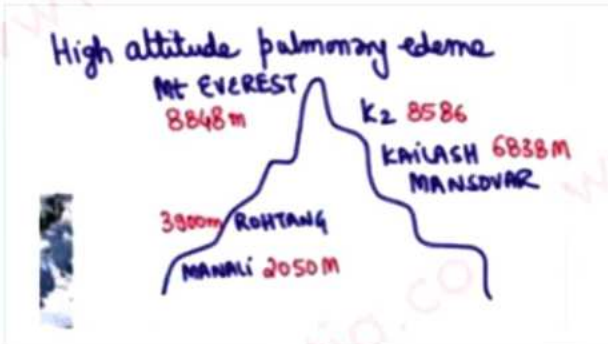 High altitude pulmonary edema
Mt EVEREST
8848m
K2 8586
KAILASH 6838M
MANSOVAR
3900m ROHTANG
MANALI 2050M